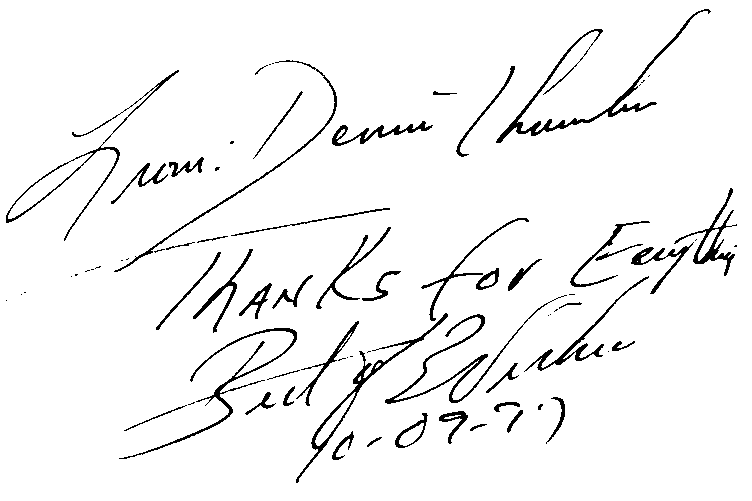 From: Dennis Chambers
THANKS for Everything
Best of Wishes
10-09-97